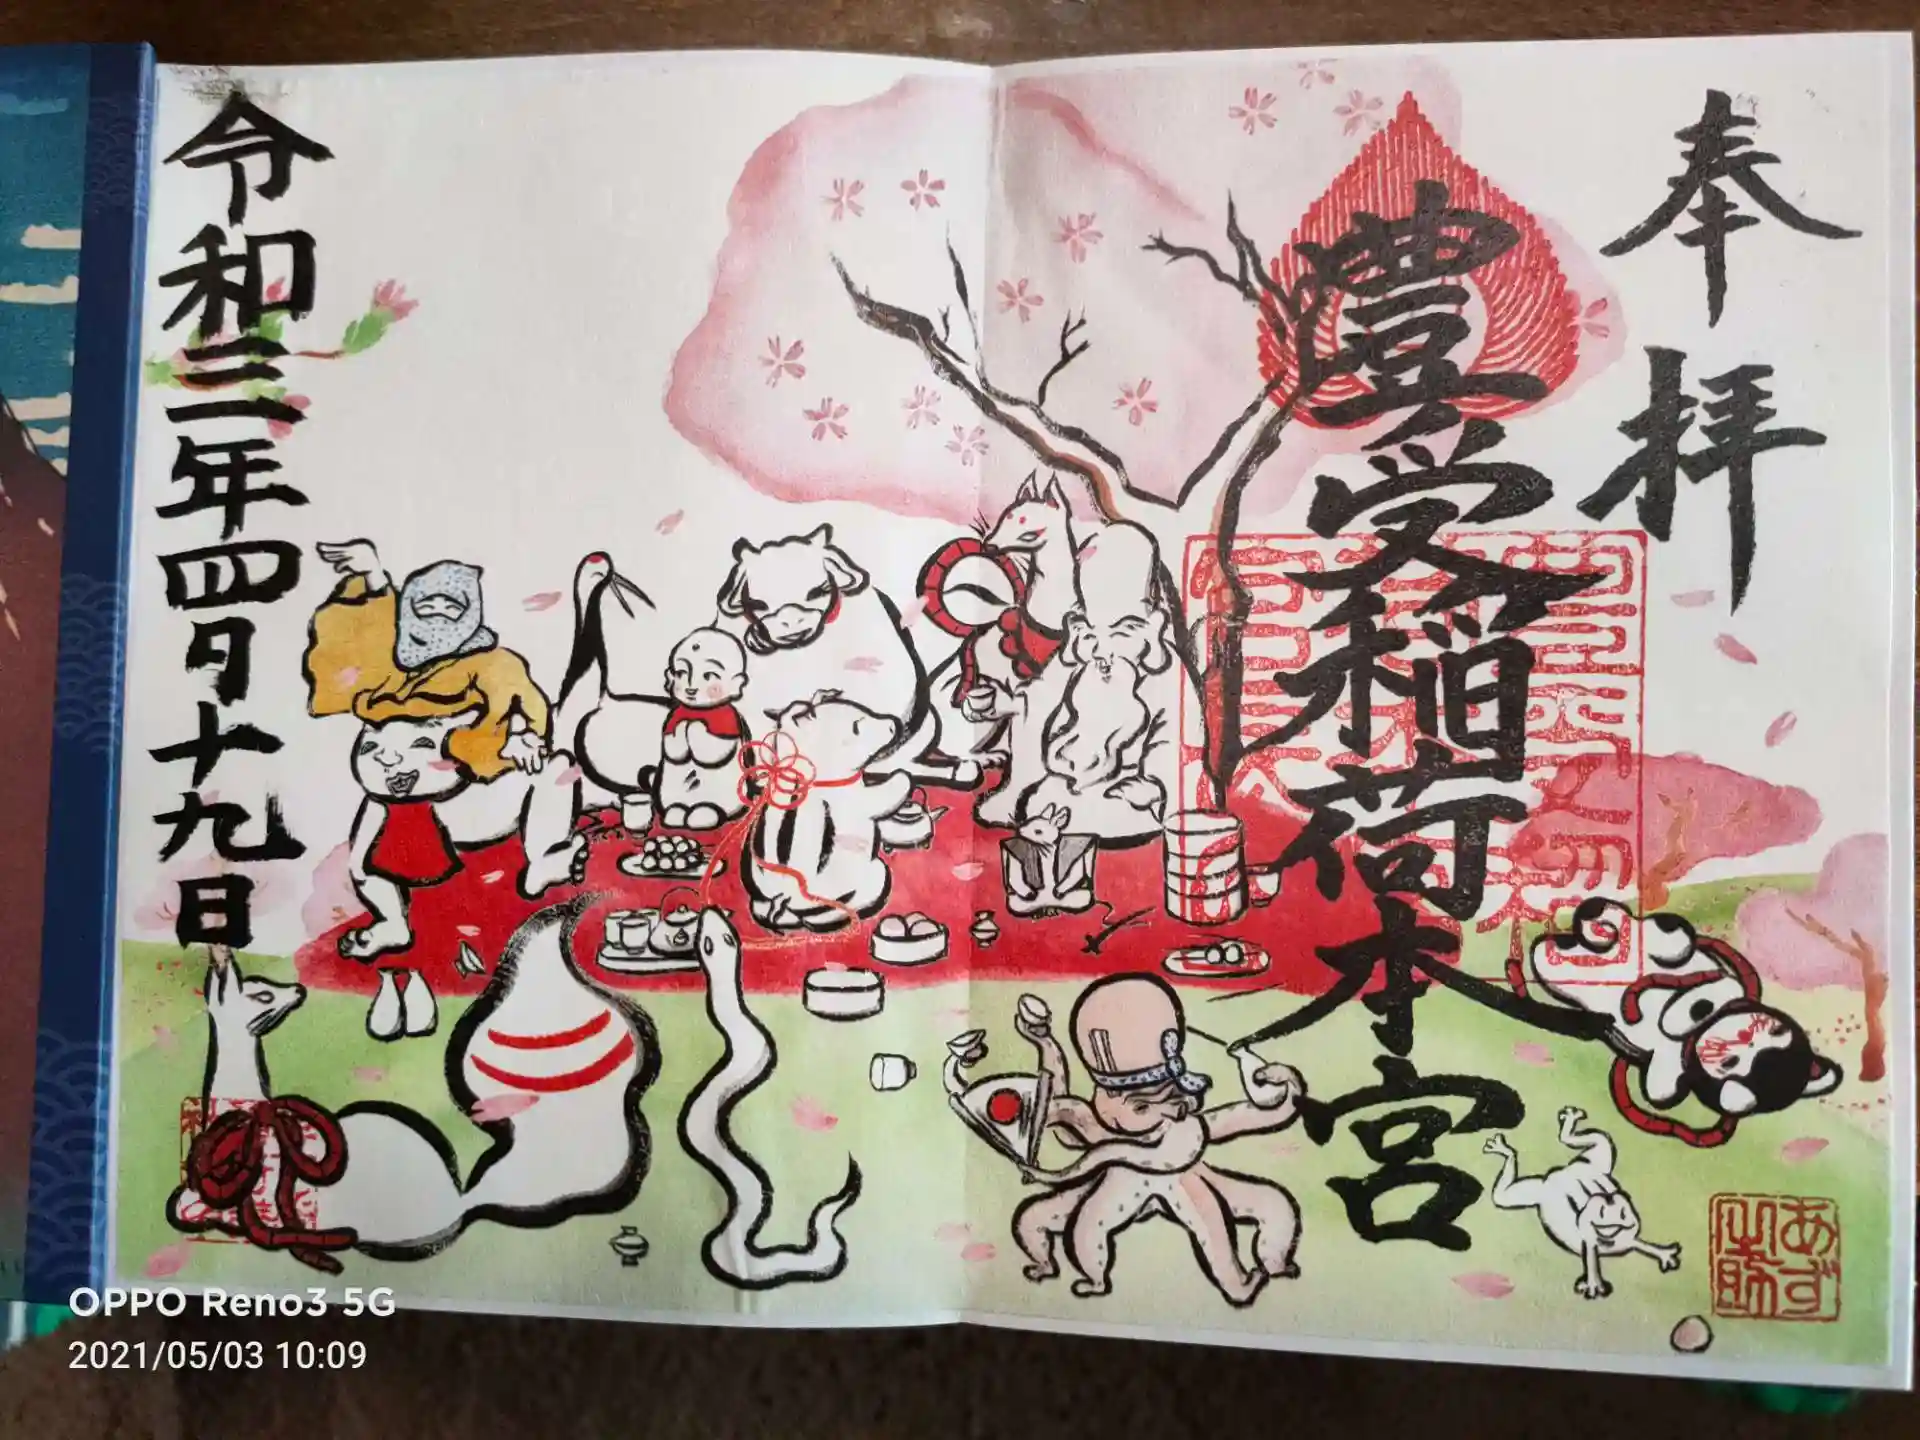 奉拝
豊受稲荷本宮
令和三年四月十九日
あず
之助
OPPO Reno3 5G
2021/05/03 10:09